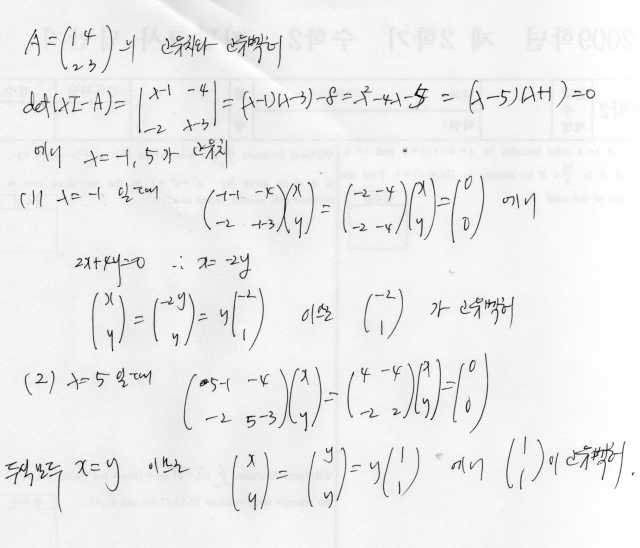 A = (1 4 / 2 3) 의 고유치와 고유벡터
det(λI-A) = | λ-1 -4 / -2 λ-3 | = (λ-1)(λ-3)-8 = λ²-4λ-5 = (λ-5)(λ+1) = 0
에서 λ = -1, 5가 고유치
(1) λ = -1 일때 (-1-1 -4 / -2 -1-3)(x / y) = (-2 -4 / -2 -4)(x / y) = (0 / 0) 에서
2x+4y=0 ∴ x = -2y
(x / y) = (-2y / y) = y(-2 / 1) 이므로 (-2 / 1) 가 고유벡터
(2) λ = 5 일때 (5-1 -4 / -2 5-3)(x / y) = (4 -4 / -2 2)(x / y) = (0 / 0)
두식모두 x = y 이므로 (x / y) = (y / y) = y(1 / 1) 에서 (1 / 1)이 고유벡터.